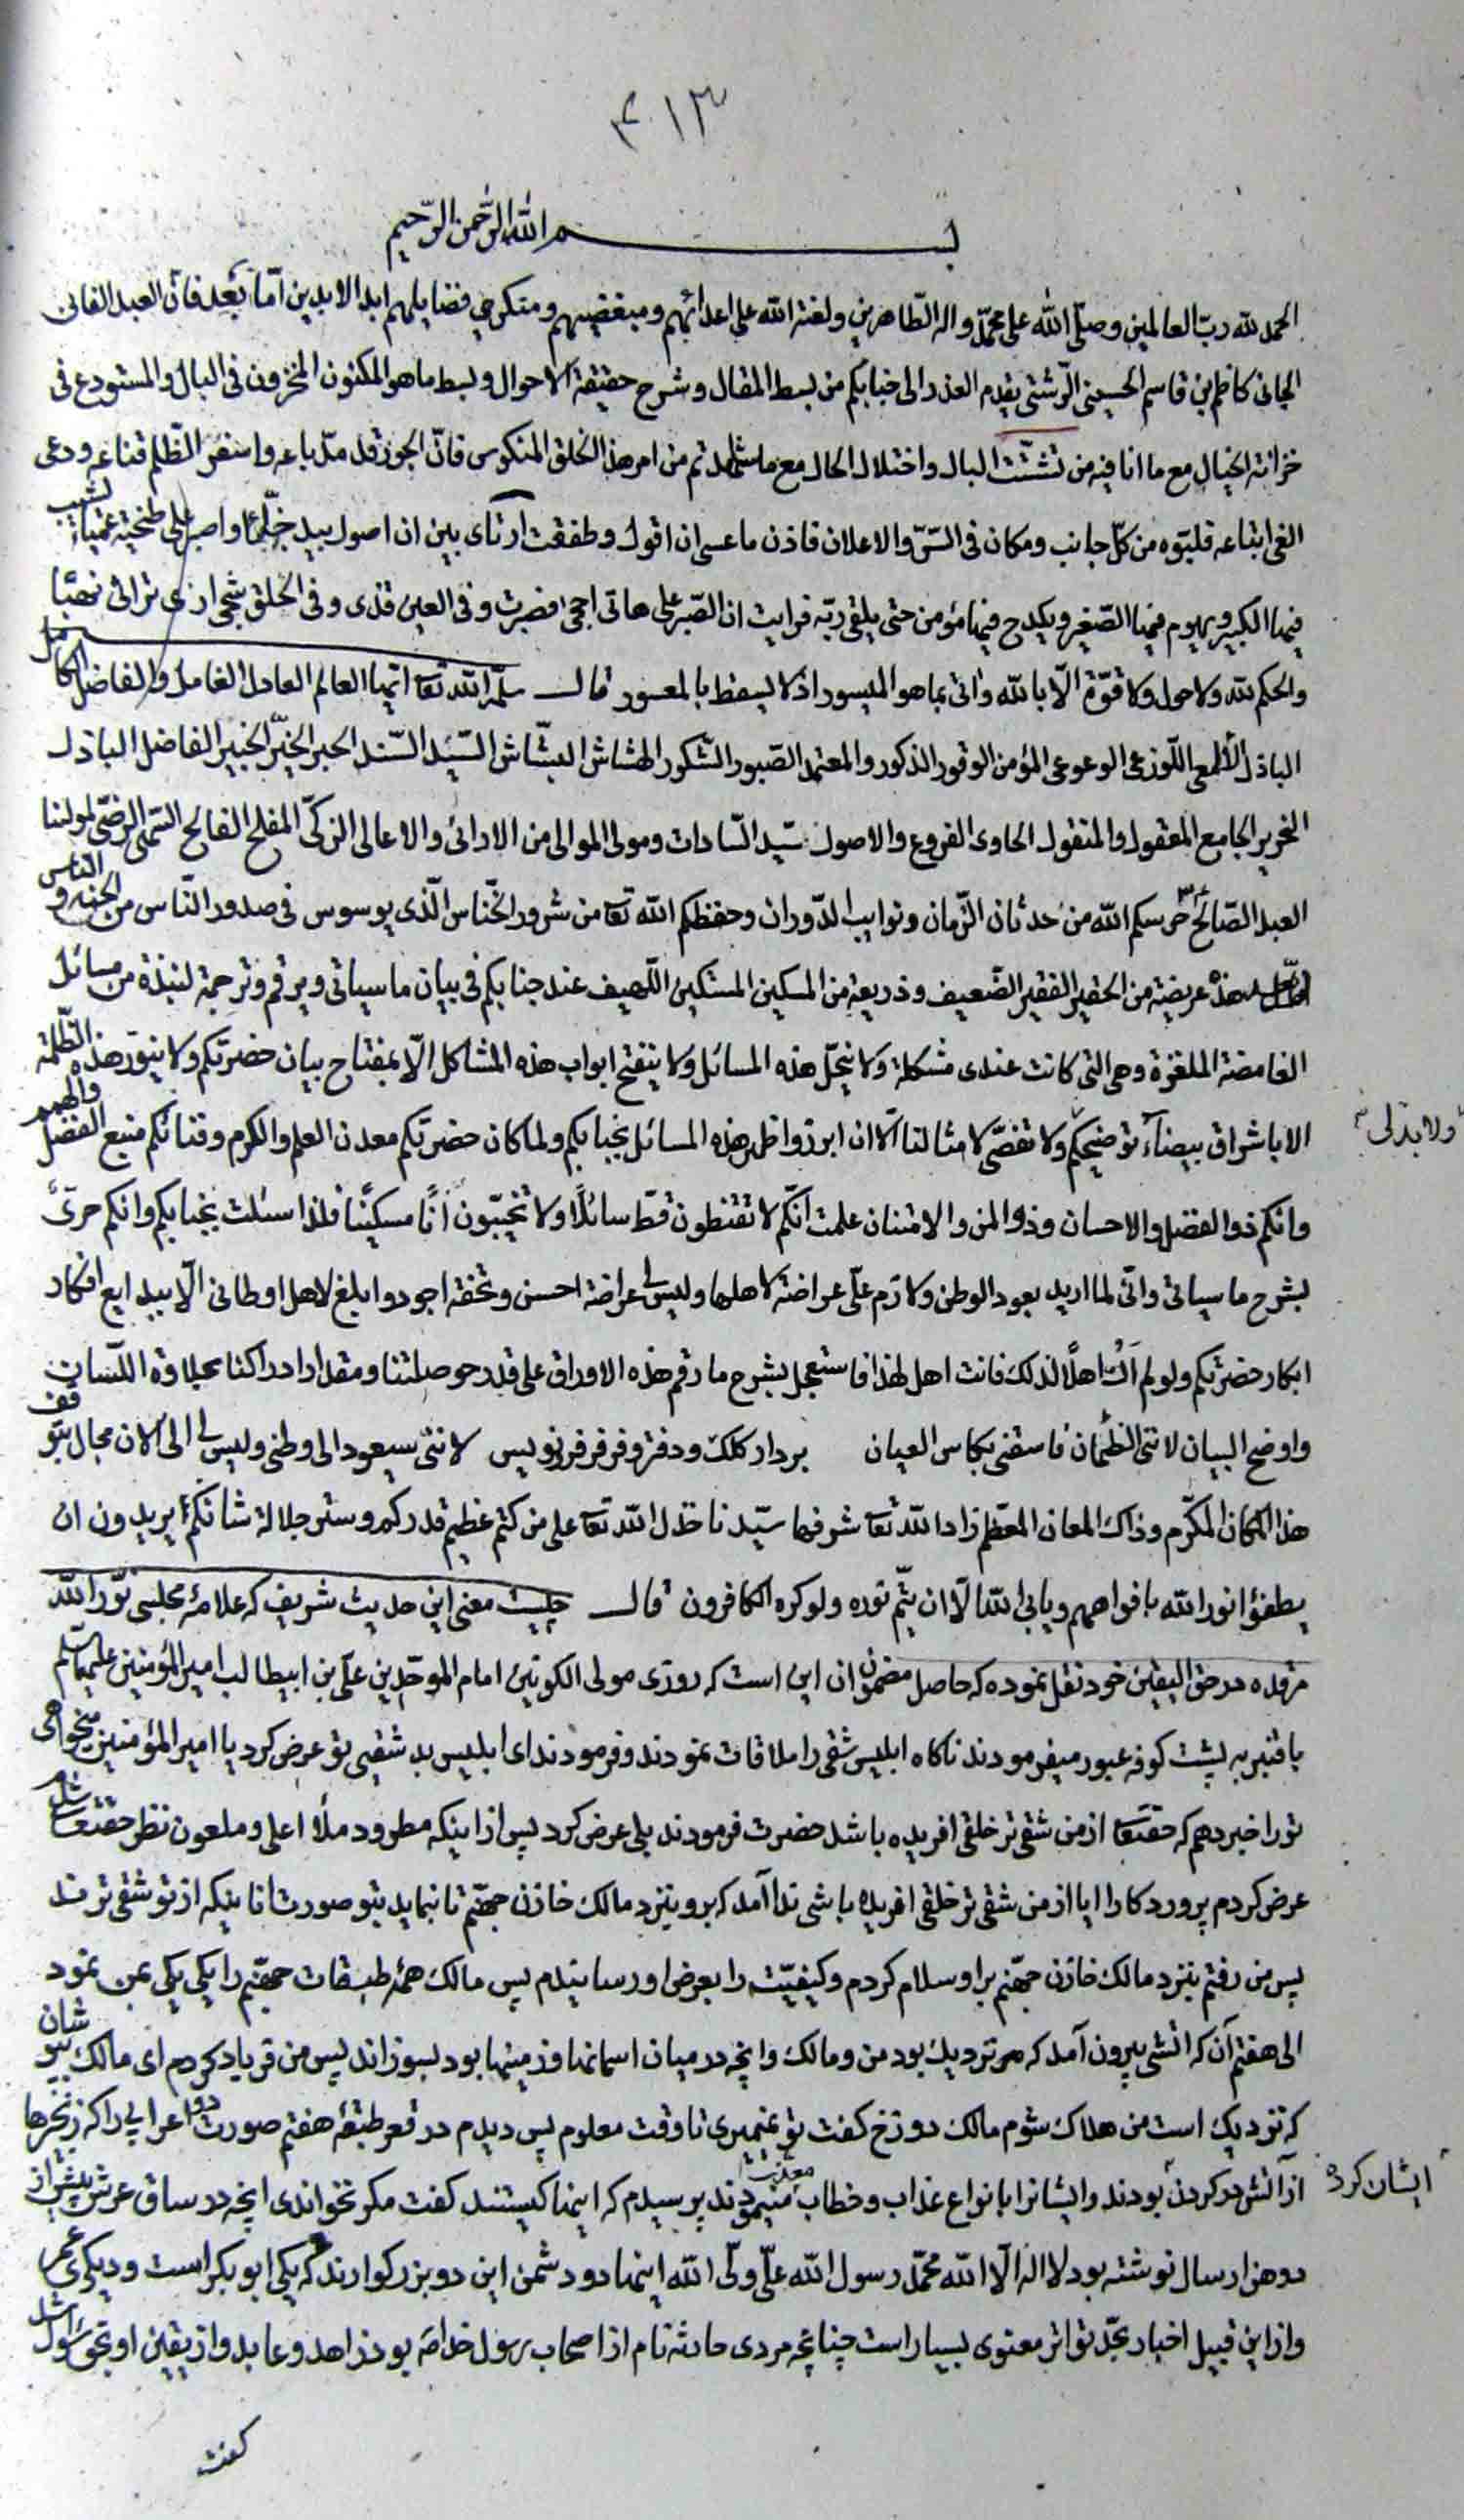 ٤١٣
بسم الله الرحمن الرحیم
الحمد لله ربّ العالمین وصلّی الله علی محمّد واله الطّاهرین ولعنة الله علی اعدائهم ومبغضیهم ومنکری فضایلهم ابد الابدین امّا بَعد فانّ العبد الفانی
الجانی کاظم بن قاسم الحسینی الرّشتی یقدم العذر الی جنابکم من بسط المقال وشرح حقیقة الاحوال وبسط ما هو المکنون المخزون فی البال والمستودع فی
خزانة الخیال مع ما انا فیه من تشتّت البال واختلال الحال مع ما شاهدتم من امر هذا الخلق المنکوس فانّ الجور قد مدّ باعه واسفر الظّلم قناعه ودعی
الغی اتباعه فلبّوه من کلّ جانب ومکان فی السّرّ والاعلان فاذن ما عسی ان اقول وطفقت ارتأی بین ان اصول بید جذّاء او اصبر علی طخیة عمیاء یشیب
فیها الکبیر ویهرم فیها الصّغیر ویکدح فیها مؤمن حتی یلقی ربّه فرایت ان الصّبر علی هاتی احجی فصبرت وفی العین قذی وفی الحلق شجی اری تراثی نهبًا
والحکم لله ولا حول ولا قوّة الّا بالله واتی بما هو المیسور اذ لا یسقط بالمعسور قال سلّمه الله تعا ایّها العالم العادل العامل والفاضل الکامل
الباذل الألمعی اللّوذعی الوعوعی المؤمن الوقور الذکور والمعتمد الصّبور الشّکور الهشّاش البشّاش السّیّد السّند الحبر الخیّر الخبیر الفاضل الباذل
النحریر الجامع المعقول والمنقول الحاوی الفروع والاصول سیّد السّادات ومولی الموالی من الادانی والاعالی الزکّی المفلح الفالح السّمی الرضیّ لمولینا
العبد الصّالح ع حرسکم الله من حدثان الزّمان ونوایب الدّوران وحفظکم الله تعا من شرور الخنّاس الّذی یوسوس فی صدور النّاس من الجنة والناس
هذه عریضة من الحقیر الفقیر الضّعیف وذریعة من المسکین المستکین اللّهیف عند جنابکم فی بیان ما سیاتی ویرقم وترجمة لنبذة من مسائل
الغامضة الملغزة وهی التی کانت عندی مشکلة ولا ینحلّ هذه المسائل ولا ینفتح ابواب هذه المشاکل الّا بمفتاح بیان حضرتکم ولا ینوّر هذه الظّلمة
الا باشراق بیضآء توضیحکم ولا تفصّی لامثالنا الّا ان ابرز واظهر هذه المسائل بجنابکم ولما کان حضرتکم معدن العلم والکرم وفنائکم منبع الفضل والهمم
ولا بدّ لی
وانکم ذوا الفضل والاحسان وذوا المن والامتنان علمت انّکم لا تقنطون قطّ سائلًا ولا تخیّبون انًا مسکینًا فلذا سئلت بجنابکم وانکم حریّ
بشرح ما سیاتی وانّی لما ارید بعود الوطن ولازم علّی عراضة لاهلها ولیس لی عراضة احسن وتحفة اجود وابلغ لاهل اوطانی الّا بیدایع افکار
ابکار حضرتکم ولو لم اَکُ اهلًا لذلک فانت اهل لهذا فاستعجل بشرح ما رقم هذه الاوراق علی قدر حوصلتنا ومقدار ادراکنا بحلاوة اللّسان
واوضح البیان لانّی الظمأن فاسقنی بکاس العیان بردار کلک ودفتر وفرفر فرو نویس لاننّی سیعود الی وطنی ولیس لی الی الان مجال بتوقف
هذا المکان المکرّم وذاک المعان المعظم زادا لله تعا شرفها سیّدنا خذل الله تعا علی من کتم عظیم قدرکم وستر جلالة شانکم یریدون ان
یطفؤا نور الله بافواههم ویابی الله الّا ان یتّم نوره ولو کره الکافرون قال چیست معنی این حدیث شریف که علامهٔ مجلسی نوّر الله
مرقده در حق الیقین خود نقل نموده که حاصل مضمون ان این است که روزی مولی الکونین امام الموحّدین علّی بن ابیطالب امیر المؤمنین علیه السّلم
با قنبر به پشت کوفه عبور میفرمودند ناکاه ابلیس شقی را ملاقات نمودند وفرمودند ای ابلیس بد شقیی تو عرض کرد یا امیر المؤمنین میخواهی
تو را خبر دهم که حقتعا از من شقی تر خلقی افریده باشد حضرت فرمودند بلی عرض کرد پس از اینکه مطرود ملأ اعلی وملعون نظر حقتعا شدم
عرض کردم پروردکارا ایا از من شقی تر خلقی افریده باشی ندا آمد که برو بنزد مالک خازن جهنّم تا بنماید بتو صورت انانیکه از تو شقی ترند
پس من رفتم بنزد مالک خازن جهّنم بر او سلام کردم وکیفیّت را بعرض او رسانیدم پس مالک همهٔ طبقات جهنّم را یکی یکی بمن نمود
الی هفتم آن که اتشی بیرون آمد که هر نزدیک بود من ومالک وانچه در میان اسمانها وزمینها بود بسوزاند پس من فریاد کردم ای مالک بپوشان
که نزدیک است من هلاک شوم مالک دوزخ کفت تو نمیمیری تا وقت معلوم پس دیدم در قعر طبقهٔ هفتم صورت دو اعرابی را که زنجیرها
از آتش در کردن بودند وایشانرا بانواع عذاب وخطاب معذّب مینمودند پرسیدم که اینها کیستند کفت مکر نخواندی انچه در ساق عرش پیش از
ایشان کرده
دو هزار سال نوشته بود لا اله الّا الله محمّد رسول الله علّی ولّی الله اینها دو دشمن این دو بزرکوارند که یکی ابو بکر است ودیکری عمر
واز این قبیل اخبار بحدّ تواتر معنوی بسیار است چنانچه مردی حادثه نام از اصحاب رسول خدا صَ بود زاهد وعابد واز یقین او بحق رسول الله
کفت